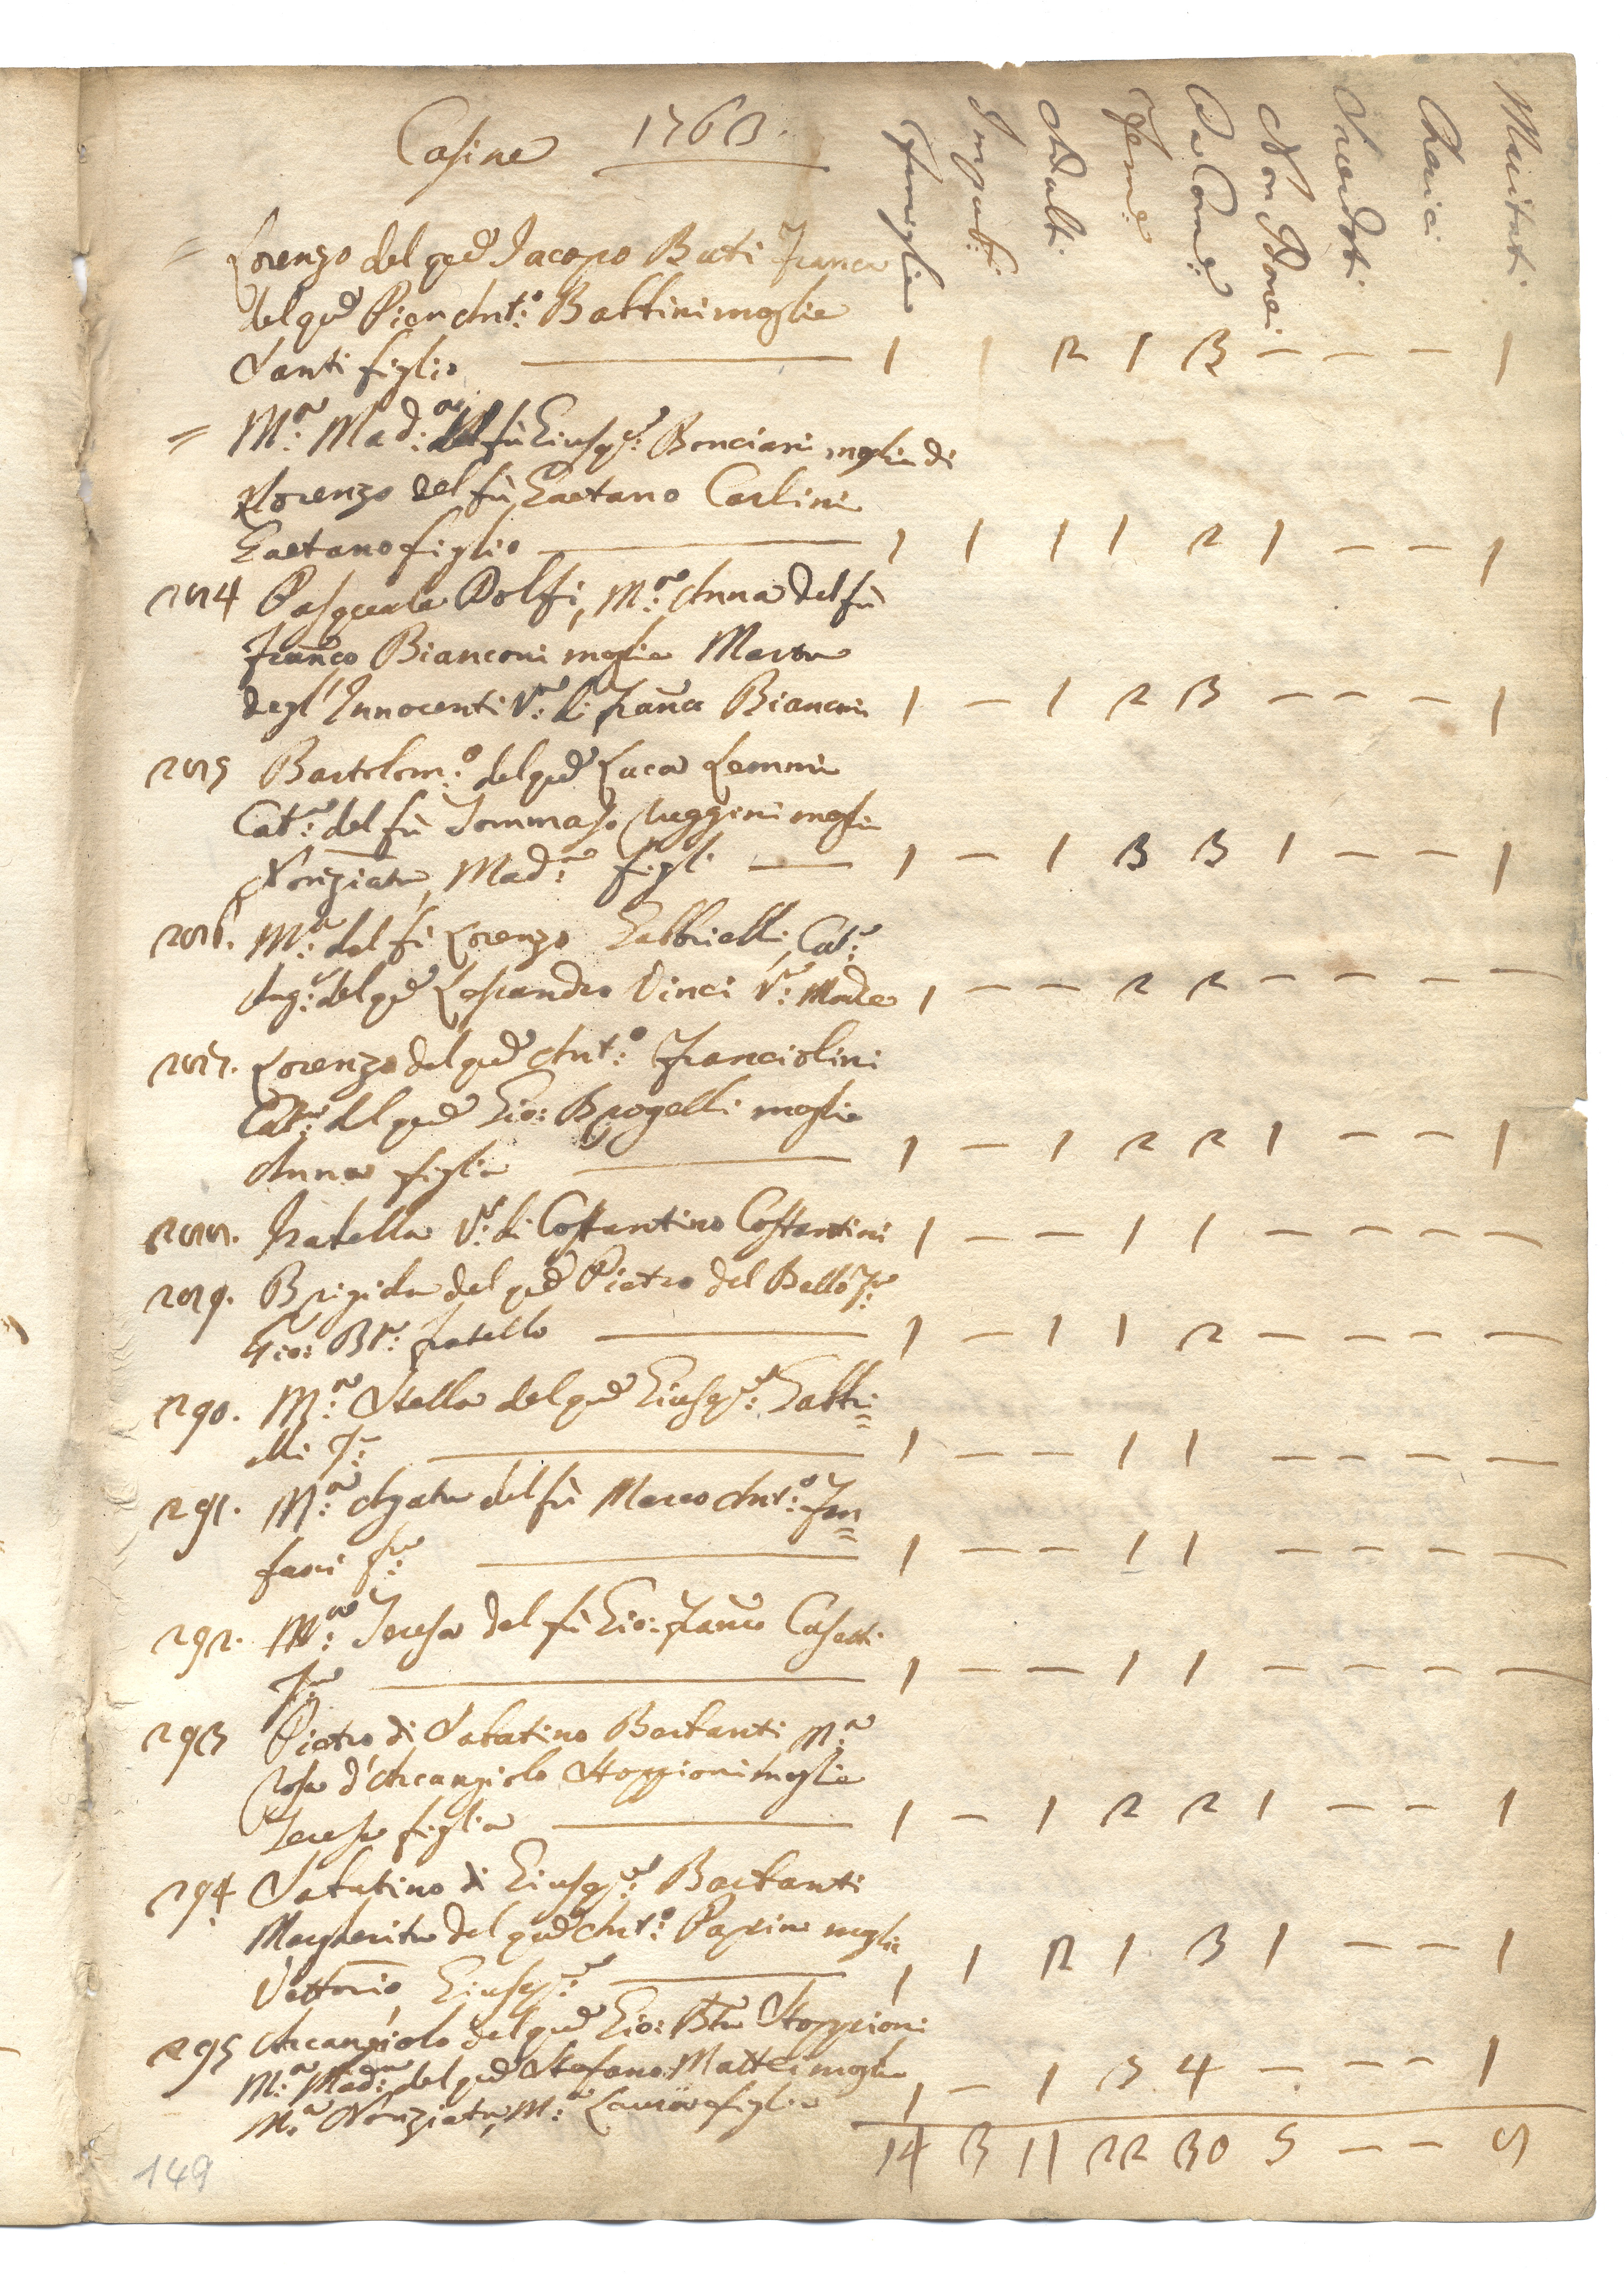 Casine 1763.
Famiglie Impub: Adulti Femè Da Comè: Non Idonei Sacerdoti Cherici Maritati
= Lorenzo del qd̃ Jacopo Buti Franca
del qd̃ Pier Ant:º Battini moglie
Santi figlio — 1 1 2 1 3 — — — 1
= M:ª Mad:ª del fù Giusepe: Bonciani moglie di
Lorenzo del fù Gaetano Carlini
Gaetano figlio — 1 1 1 1 2 1 — — 1
284 Pasquale Dolfi, M:ª Anna del fù
Franco Bianconi moglie Marta
degl'Innocenti V:ª di Franco Bianconi 1 — 1 2 3 — — — 1
285 Bartolom:º del qd̃ Luca Lemmi
Cat:ª del fù Tommaso Ruggini moglie
Nonziata, Mad:ª figli — 1 — 1 3 3 1 — — 1
286. M:ª del fù Lorenzo Gabbrielli, Cat:ª
Ang:ª del qd̃ Lessandro Vinci V:ª Madre 1 — — 2 2 — — — —
287. Lorenzo del qd̃ Ant:º Franciolini
Catt:ª del qd̃ Gio: Brogelli moglie
Anna figlia — 1 — 1 2 2 1 — — 1
288. V:ª di Costantino Costantini 1 — — 1 1 — — — —
289. Brigida del qd̃ Pietro del Bello F:ª
Gio: Btª: fratello — 1 — 1 1 2 — — — —
290. M:ª Stella del qd̃ Giusepe: Gabbri=
elli F:ª — 1 — — 1 1 — — — —
291. M:ª Agata del fù Marco Ant:º Fan=
fani F:ª — 1 — — 1 1 — — — —
292. M:ª Teresa del fù Gio: Franco Casetti
F:ª — 1 — — 1 1 — — — —
293 Pietro di Sabatino Bartanti M:ª
Rosa d'Arcangiolo Stoppioni moglie
Teresa figlia — 1 — 1 2 2 1 — — 1
294 Sabatino di Giusepe: Bartanti
Margherita del qd̃ Ant:º Papini moglie
Vettorio, Giusepe: — 1 1 2 1 3 1 — — 1
295 Arcangiolo del qd̃ Gio: Btã Stoppioni
M:ª Mad:ª del qd̃ Stefano Mattei moglie
M:ª Nonziata, M:ª Laura figlie 1 — 1 3 4 — — — 1
14 3 11 22 30 5 — — 8
149